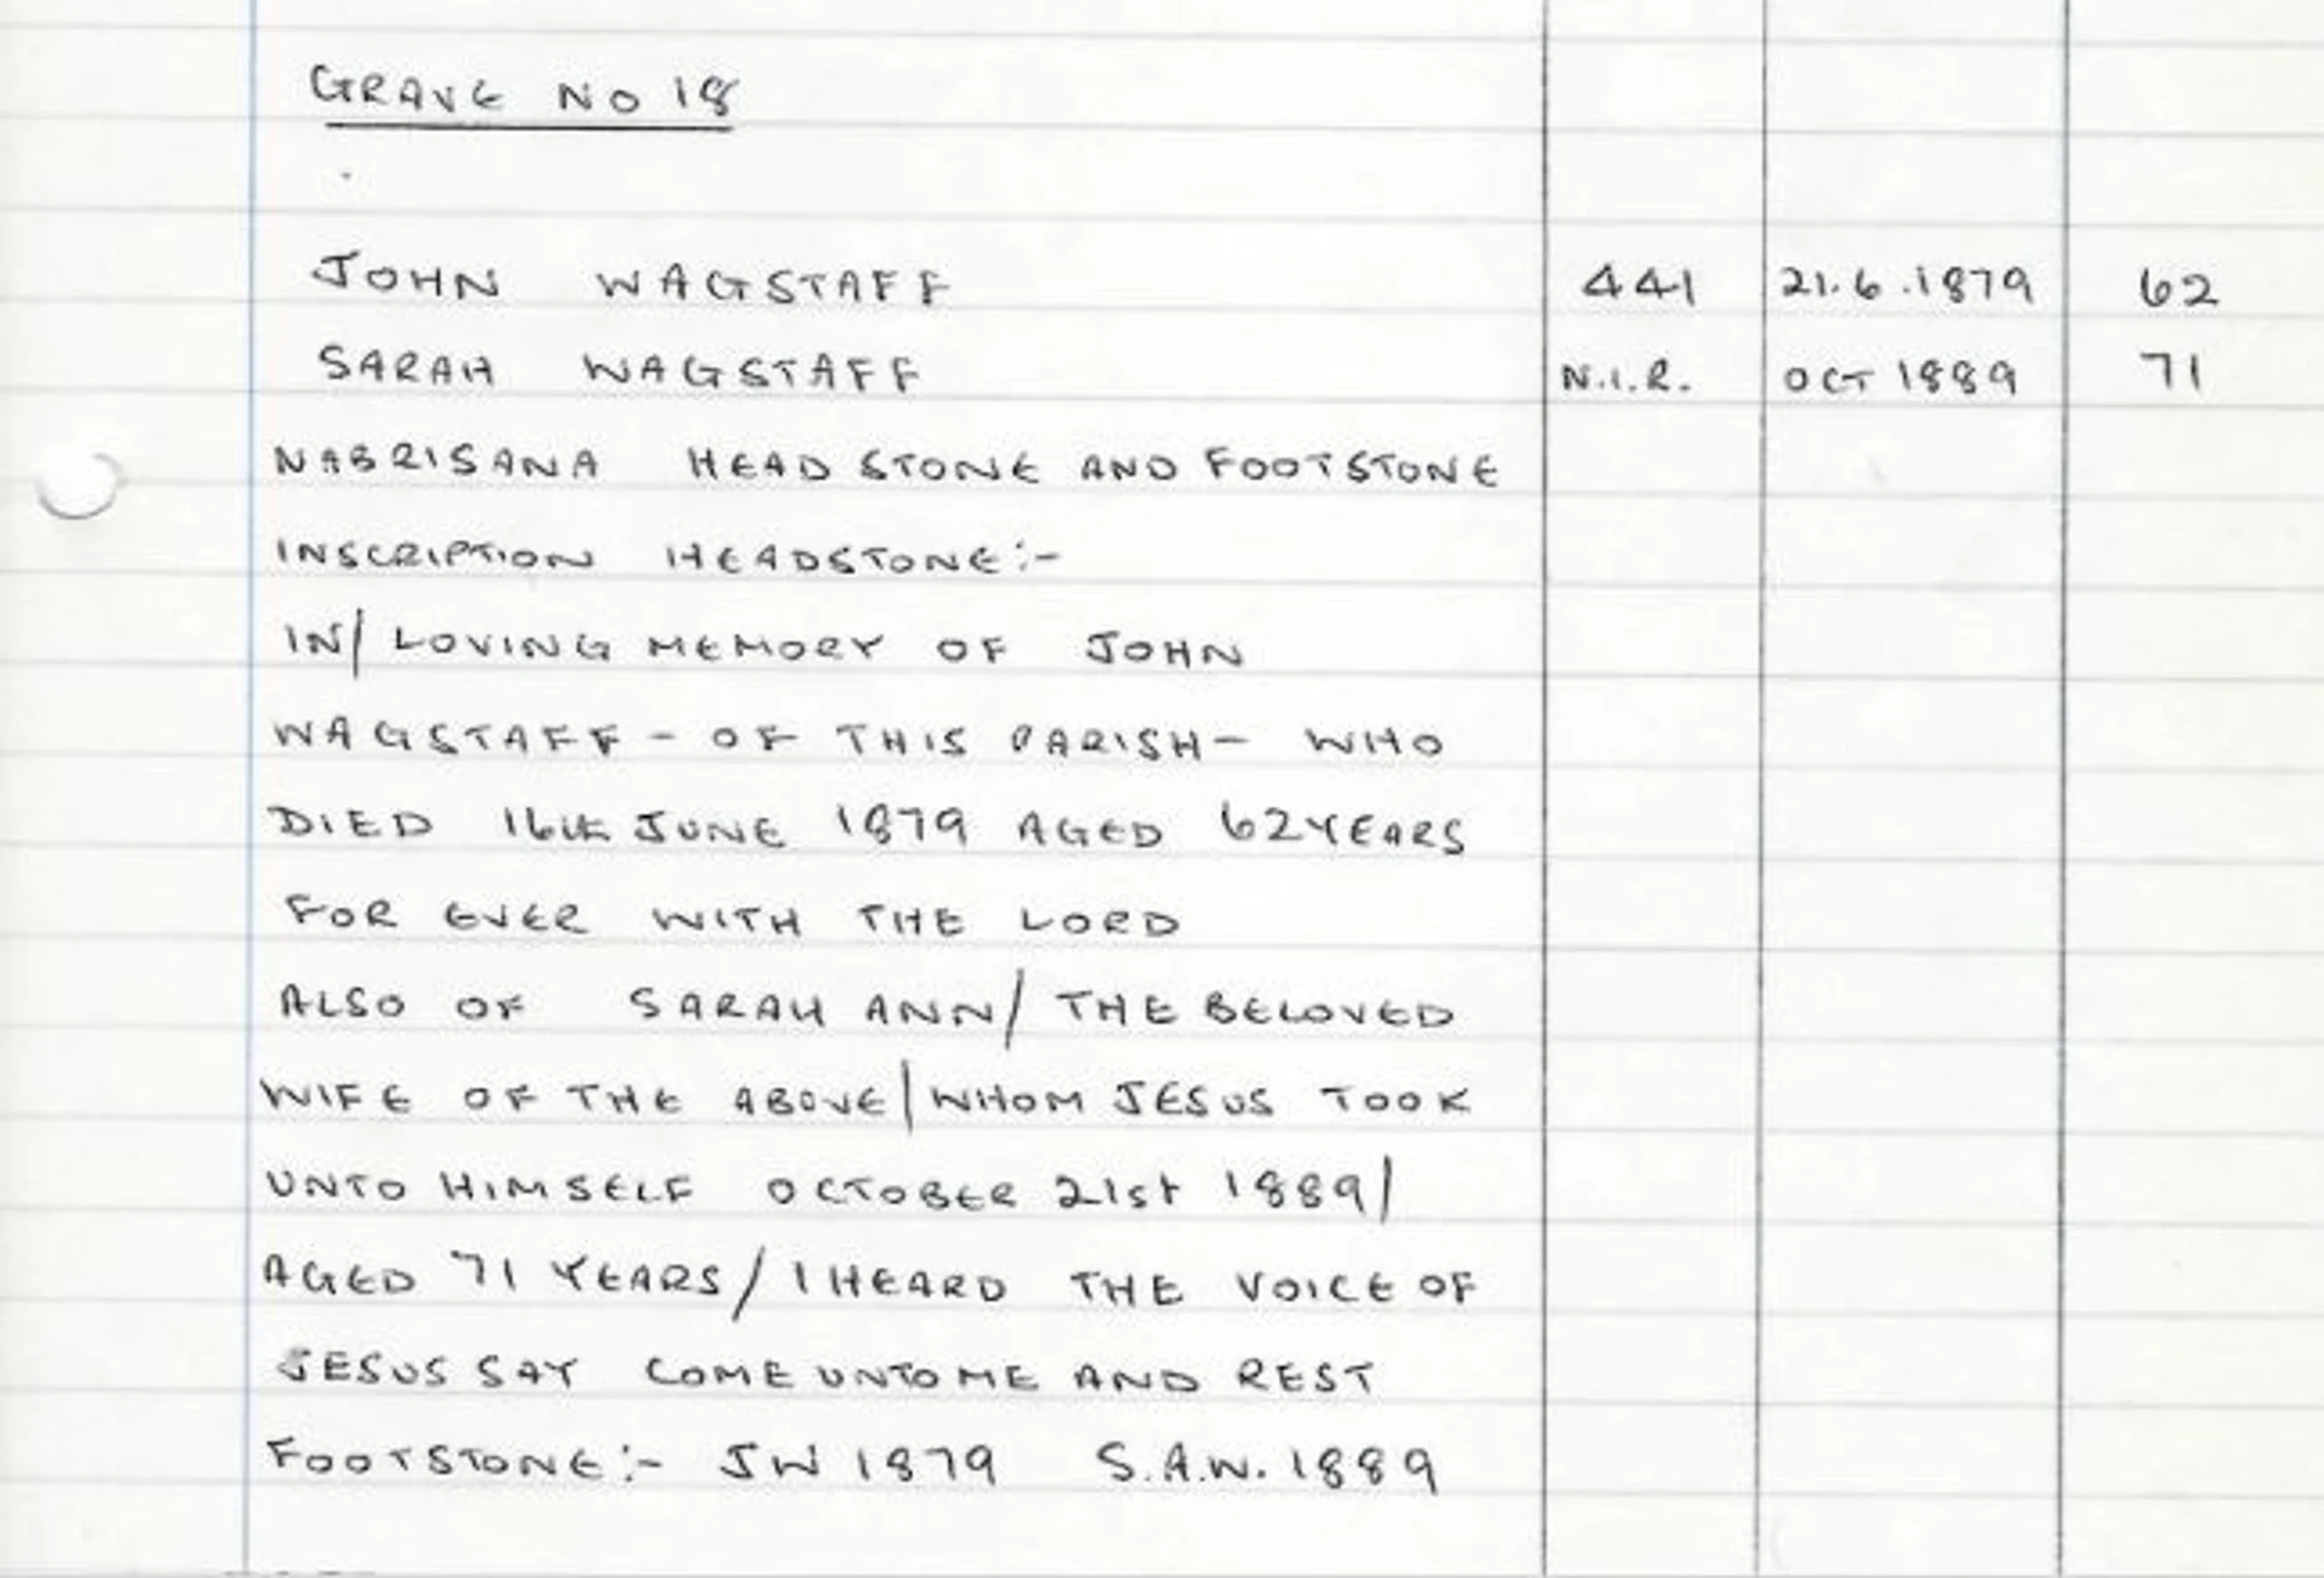 GRAVE NO 18
JOHN WAGSTAFF 441 21.6.1879 62
SARAH WAGSTAFF N.I.R. OCT 1889 71
NABRISANA HEAD STONE AND FOOTSTONE
INSCRIPTION HEADSTONE:-
IN/ LOVING MEMORY OF JOHN
WAGSTAFF - OF THIS PARISH - WHO
DIED 16th JUNE 1879 AGED 62 YEARS
FOR EVER WITH THE LORD
ALSO OF SARAH ANN/ THE BELOVED
WIFE OF THE ABOVE/ WHOM JESUS TOOK
UNTO HIMSELF OCTOBER 21st 1889/
AGED 71 YEARS/ I HEARD THE VOICE OF
JESUS SAY COME UNTO ME AND REST
FOOTSTONE:- JW 1879 S.A.W. 1889